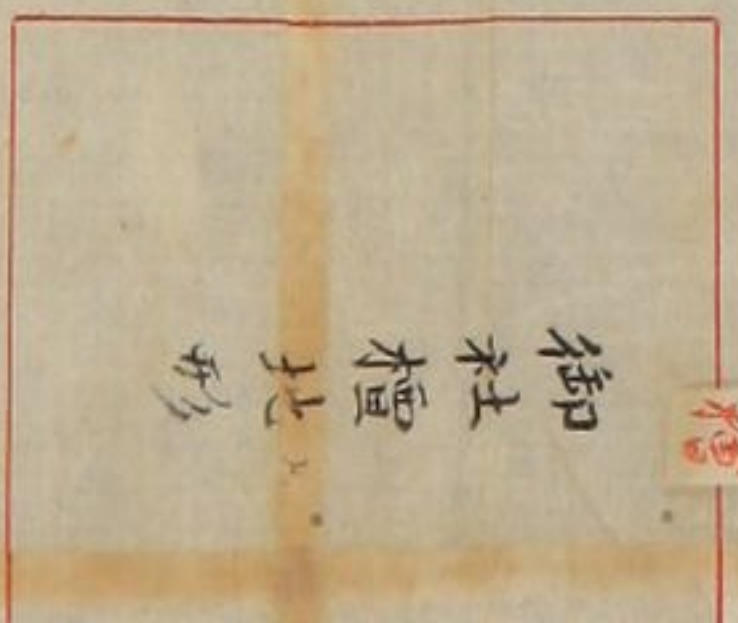 御社檀地形